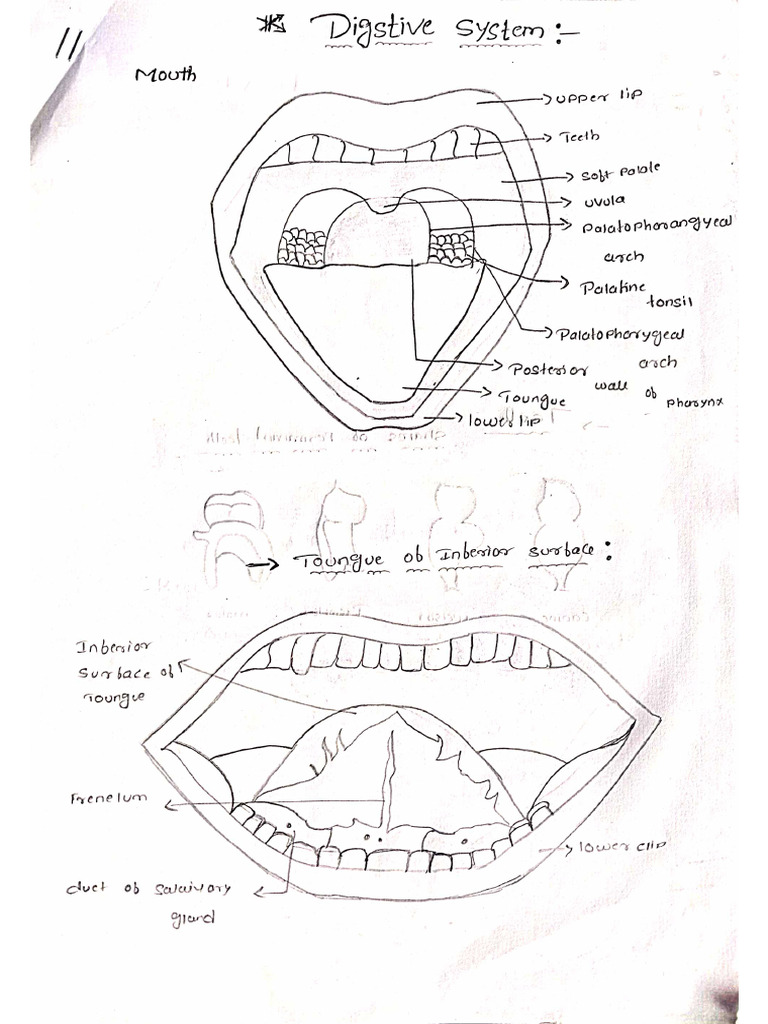 11
Digstive System :-
Mouth
upper lip
Teeth
Soft Palate
uvula
Palatopharangyeal
arch
Palatine
tonsil
Palatopharygeal
arch
Posterior wall of Pharynx
Toungue
lower lip
Toungue of Inferior Surface :
Inferior
Surface of
Toungue
Frenelum
lower clip
duct of Salaivory
gland